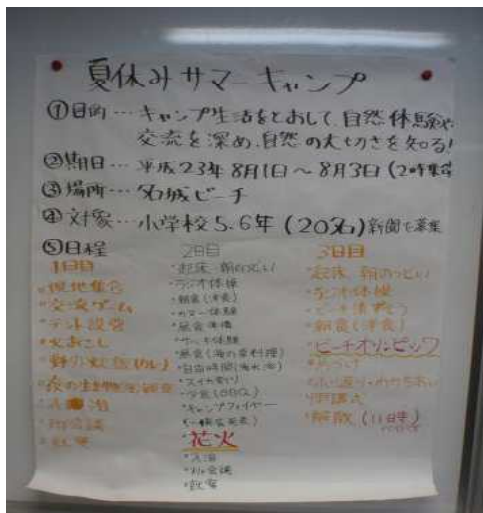 夏休みサマーキャンプ
①目的…キャンプ生活をとおして、自然体験や
交流を深め、自然の大切さを知る!
②期日…平成23年8月1日～8月3日(2時集合
③場所…名城ビーチ
④対象…小学校5.6年(20名)新聞で募集
⑤日程
1日目
・現地集合
・交流ゲーム
・テント設営
・火おこし
・野外炊飯(カレー)
・夜の生き物観察
・入浴
・班会議
・就寝
2日目
・起床、朝のつどい
・ラジオ体操
・朝食(洋食)
・カヌー体験
・昼食準備
・昼食(海の幸料理)
・自由時間(海水浴)
・スイカ割り
・夕食(BBQ)
・キャンプファイヤー
・花火
・入浴
・班会議
・就寝
3日目
・起床、朝のつどい
・ラジオ体操
・ビーチ清掃
・朝食(洋食)
・ビーチオリンピック
・片づけ
・ふり返り・わかちあい
・閉講式
・解散(11時)